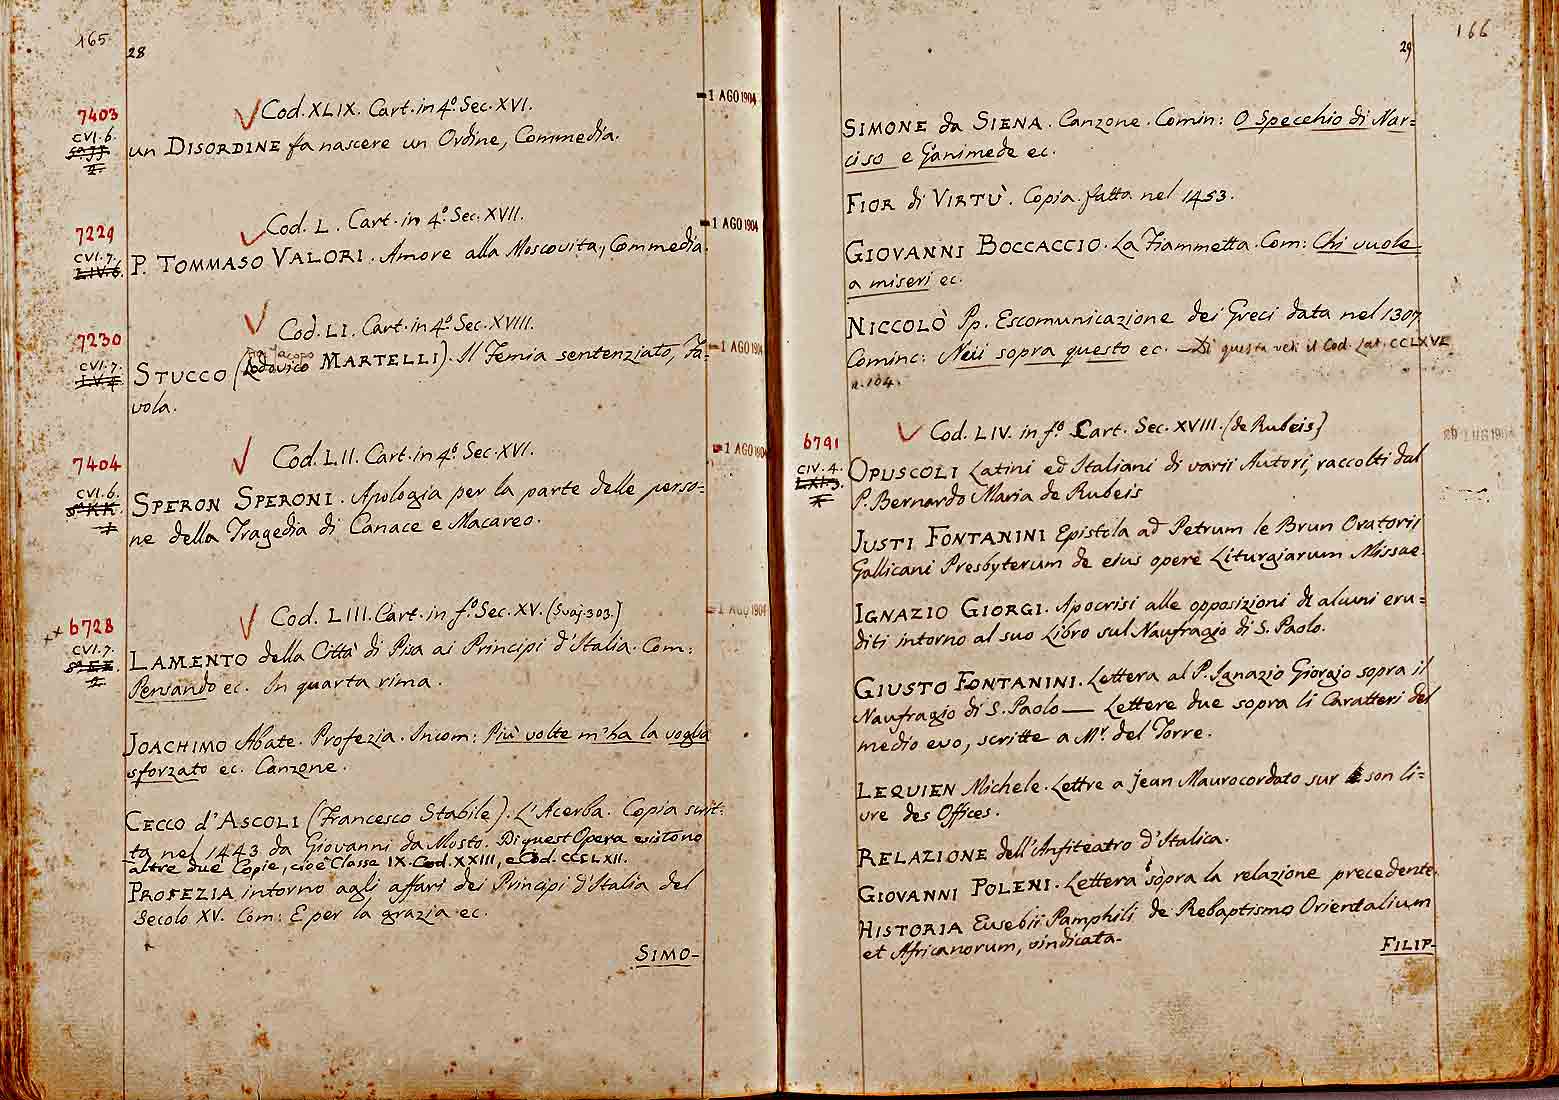 165
28
Cod. XLIX. Cart. in 4º. Sec. XVI.
1 AGO 1904
7403
CVI. 6.
un DISORDINE fa nascere un Ordine, Commedia.
Cod. L. Cart. in 4º. Sec. XVII.
1 AGO 1904
7229
CVI. 7.
LIV.6.
P. TOMMASO VALORI. Amore alla Moscovita, Commedia.
Cod. LI. Cart. in 4º. Sec. XVIII.
1 AGO 1904
7230
CVI. 7.
Jacopo
STUCCO (Lodovico MARTELLI). Il Femia sentenziato, Fa=
vola.
Cod. LII. Cart. in 4º. Sec. XVI.
1 AGO 1904
7404
CVI. 6.
SPERON SPERONI. Apologia per la parte delle perso=
ne della Tragedia di Canace e Macareo.
Cod. LIII. Cart. in fº. Sec. XV. (Svaj. 303.)
1 AGO 1904
xx 6728
CVI. 7.
LAMENTO della Città di Pisa ai Principi d'Italia. Com:
Pensando ec. In quarta rima.
JOACHIMO Abate. Profezia. Incom: Più volte m'ha la voglia
sforzato ec. Canzone.
CECCO d'ASCOLI (Francesco Stabile). L'Acerba. Copia scrit-
ta nel 1443 da Giovanni da Mosto. Di quest Opera esistono
altre due Copie, cioè Classe IX. Cod. XXIII, e Cod. CCCLXII.
PROFEZIA intorno agli affari dei Principi d'Italia del
Secolo XV. Com: E per la grazia ec.
SIMO-
166
29
SIMONE da SIENA. Canzone. Comin: O Specchio di Nar=
ciso e Ganimede ec.
FIOR di VIRTÙ. Copia fatta nel 1453.
GIOVANNI BOCCACCIO. La Fiammetta. Com: Chi vuole
a miseri ec.
NICCOLÒ Pp. Escomunicazione dei Greci data nel 1307
Cominc: Neii sopra questo ec. — Di questa vedi il Cod. Lat. CCLXVI
a. 104.
Cod. LIV. in fº. Cart. Sec. XVIII. (de Rubeis)
29 LUG 1904
6791
CIV. 4.
LXI.3.
OPUSCOLI Latini ed Italiani di varii Autori, raccolti dal
P. Bernardo Maria de Rubeis
JUSTI FONTANINI Epistola ad Petrum le Brun Oratorii
Gallicani Presbyterum de eius opere Liturgiarum Missae.
IGNAZIO GIORGI. Apocrisi alle opposizioni di alcuni eru=
diti intorno al suo Libro sul Naufragio di S. Paolo.
GIUSTO FONTANINI. Lettera al P. Ignazio Giorgio sopra il
Naufragio di S. Paolo — Lettere due sopra li Caratteri del
medio evo, scritte a Mr. del Torre.
LEQUIEN Michele. Lettre a Jean Maurocordato sur son li=
vre des Offices.
RELAZIONE dell'Anfiteatro d'Italica.
GIOVANNI POLENI. Lettera sopra la relazione precedente.
HISTORIA Eusebii Pamphili de Rebaptismo Orientalium
et Africanorum, vindicata.
FILIP-